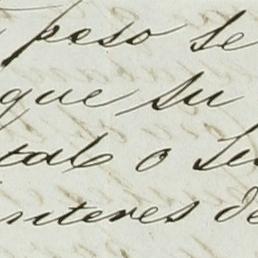 peso se
que su
tal o su
interes de